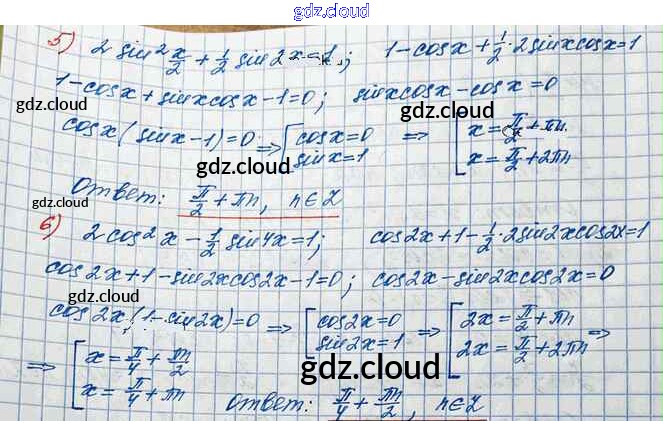 gdz.cloud
5) 2 sin² x/2 + 1/2 sin 2x = 1; 1 - cosx + 1/2 · 2 sinx cosx = 1
1 - cosx + sinx cosx - 1 = 0; sinx cosx - cosx = 0
gdz.cloud gdz.cloud
cosx (sinx - 1) = 0 ⇒ [ cosx = 0 sinx = 1 ⇒ [ x = π/2 + πn x = π/2 + 2πn
gdz.cloud gdz.cloud
Ответ: π/2 + πn, n∈Z
gdz.cloud
6) 2 cos² x - 1/2 sin 4x = 1; cos 2x + 1 - 1/2 · 2 sin 2x cos 2x = 1
cos 2x + 1 - sin 2x cos 2x - 1 = 0; cos 2x - sin 2x cos 2x = 0
gdz.cloud
cos 2x (1 - sin 2x) = 0 ⇒ [ cos 2x = 0 sin 2x = 1 ⇒ [ 2x = π/2 + πn 2x = π/2 + 2πn ⇒
gdz.cloud
⇒ [ x = π/4 + πn/2 x = π/4 + πn
Ответ: π/4 + πn/2, n∈Z